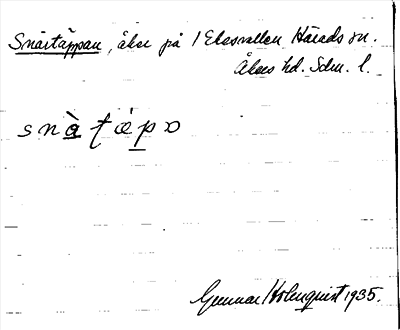 Snårtäppan, åker på 1 Ekesvallen Härads sn.
Åkers hd. Sdm. l.
snå̀tæ̀pɒ
Gunnar Holmquist 1935.